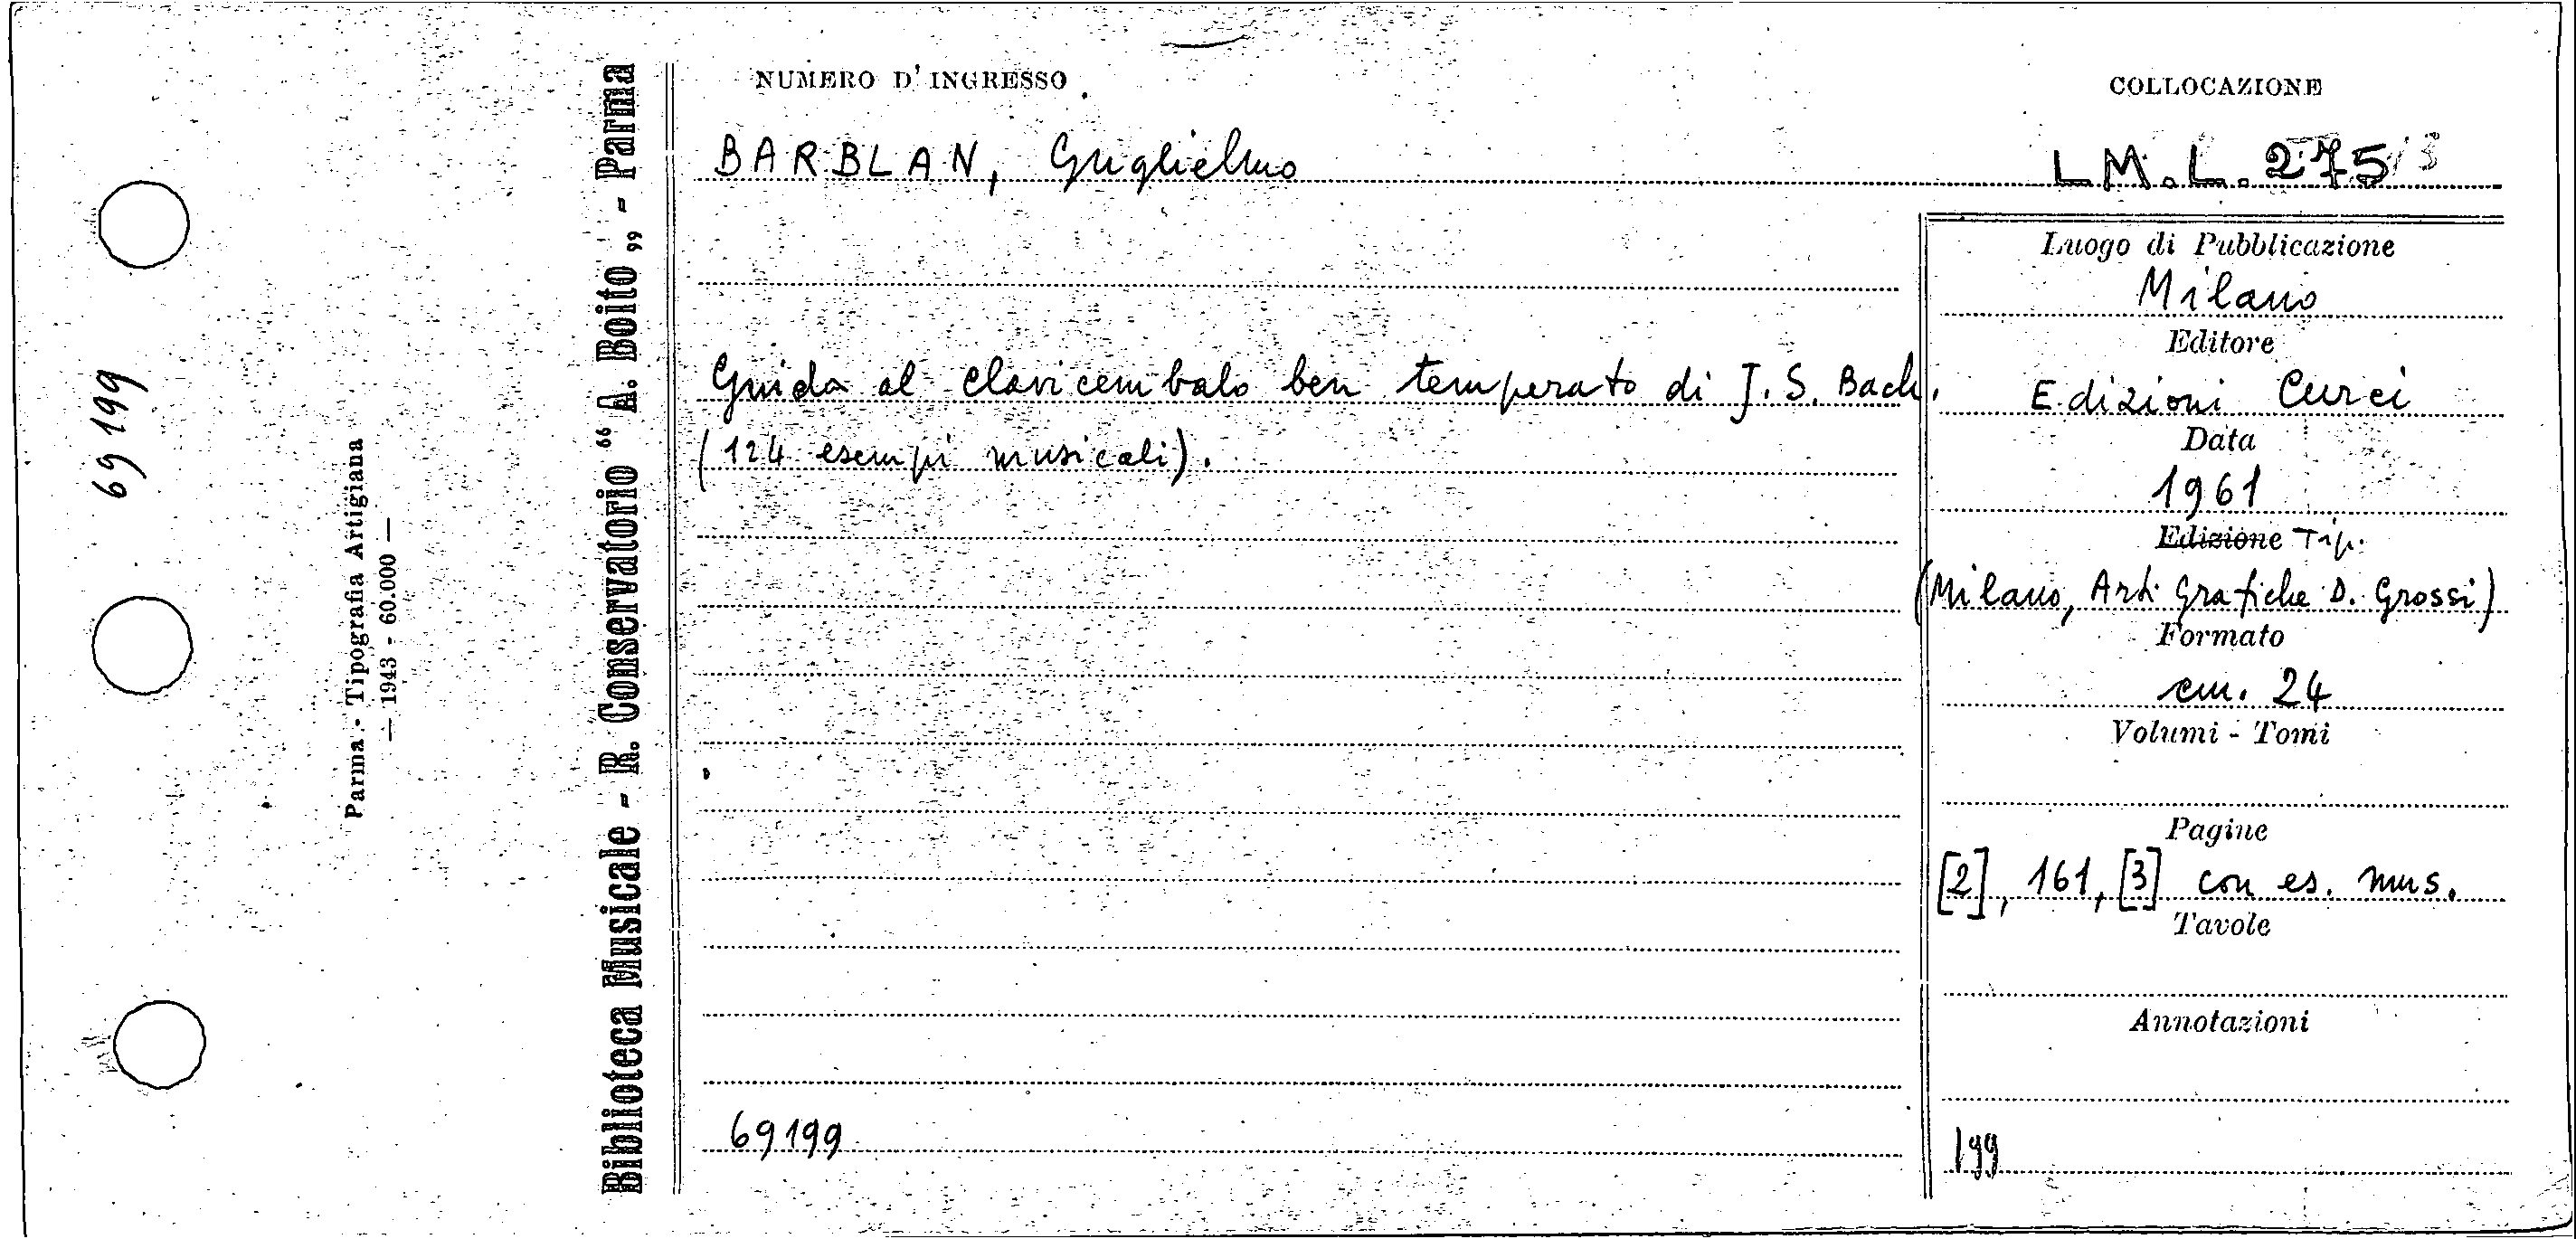 69199
Parma - Tipografia Artigiana
— 1943 - 60.000 —
Biblioteca Musicale - R. Conservatorio “ A. Boito „ - Parma
NUMERO D' INGRESSO
BARBLAN, Guglielmo
Guida al clavicembalo ben temperato di J. S. Bach.
(124 esempi musicali).
69199
COLLOCAZIONE
LM.L.275
Luogo di Pubblicazione
Milano
Editore
Edizioni Curci
Data
1961
Edizione Tip.
(Milano, Arti Grafiche D. Grossi)
Formato
cm. 24
Volumi - Tomi
Pagine
[2], 161, [3] con es. mus.
Tavole
Annotazioni
199